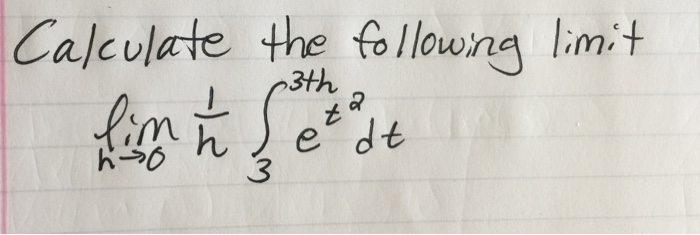 Calculate the following limit
lim h→0 1/h ∫₃³⁺ʰ e^{t²} dt